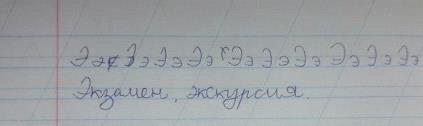 Ээ Ээ Ээ Ээ Ээ Ээ Ээ Ээ Ээ Ээ
Экзамен, экскурсия.